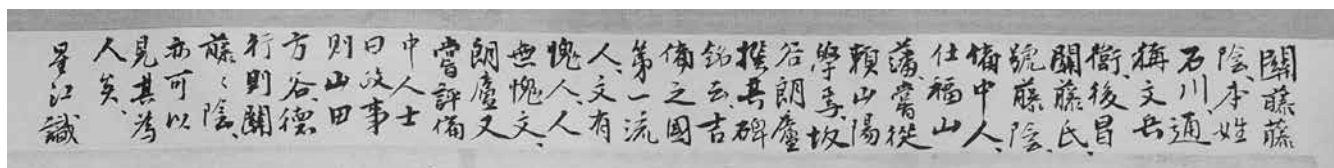 關藤藤
陰、本姓
石川、通
稱文兵
衞、後冒
關藤氏、
號藤陰、
備中人、
仕福山
藩、嘗從
賴山陽
學焉、坂
谷朗廬
撰其碑
銘云、吉
備之國
第一流
人、文有
愧人、人
無愧文、
朗廬又
嘗評備
中人士
曰、政事
則山田
方谷、德
行則關
藤藤陰、
亦可以
見其為
人矣、
星江識